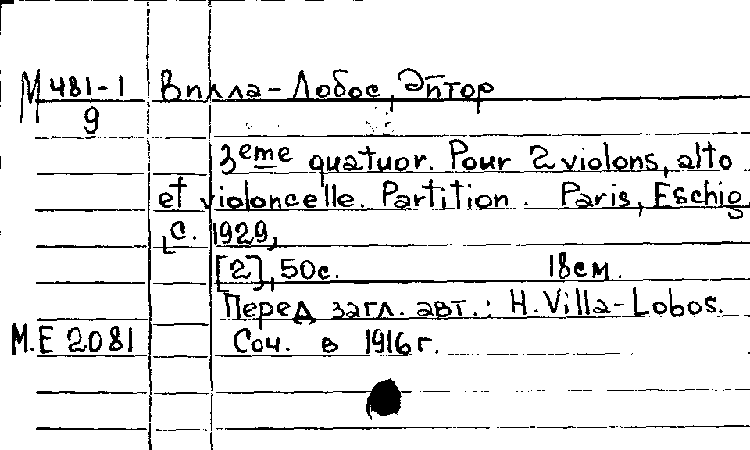 М 481-1 Вилла-Лобос, Эйтор
9
3eme quatuor. Pour 2 violons, alto
et violoncelle. Partition. Paris, Eschig
[c. 1929,
[2], 50с. 18см.
Перед загл. авт.: H. Villa-Lobos.
M.E 2081 Соч. в 1916 г.